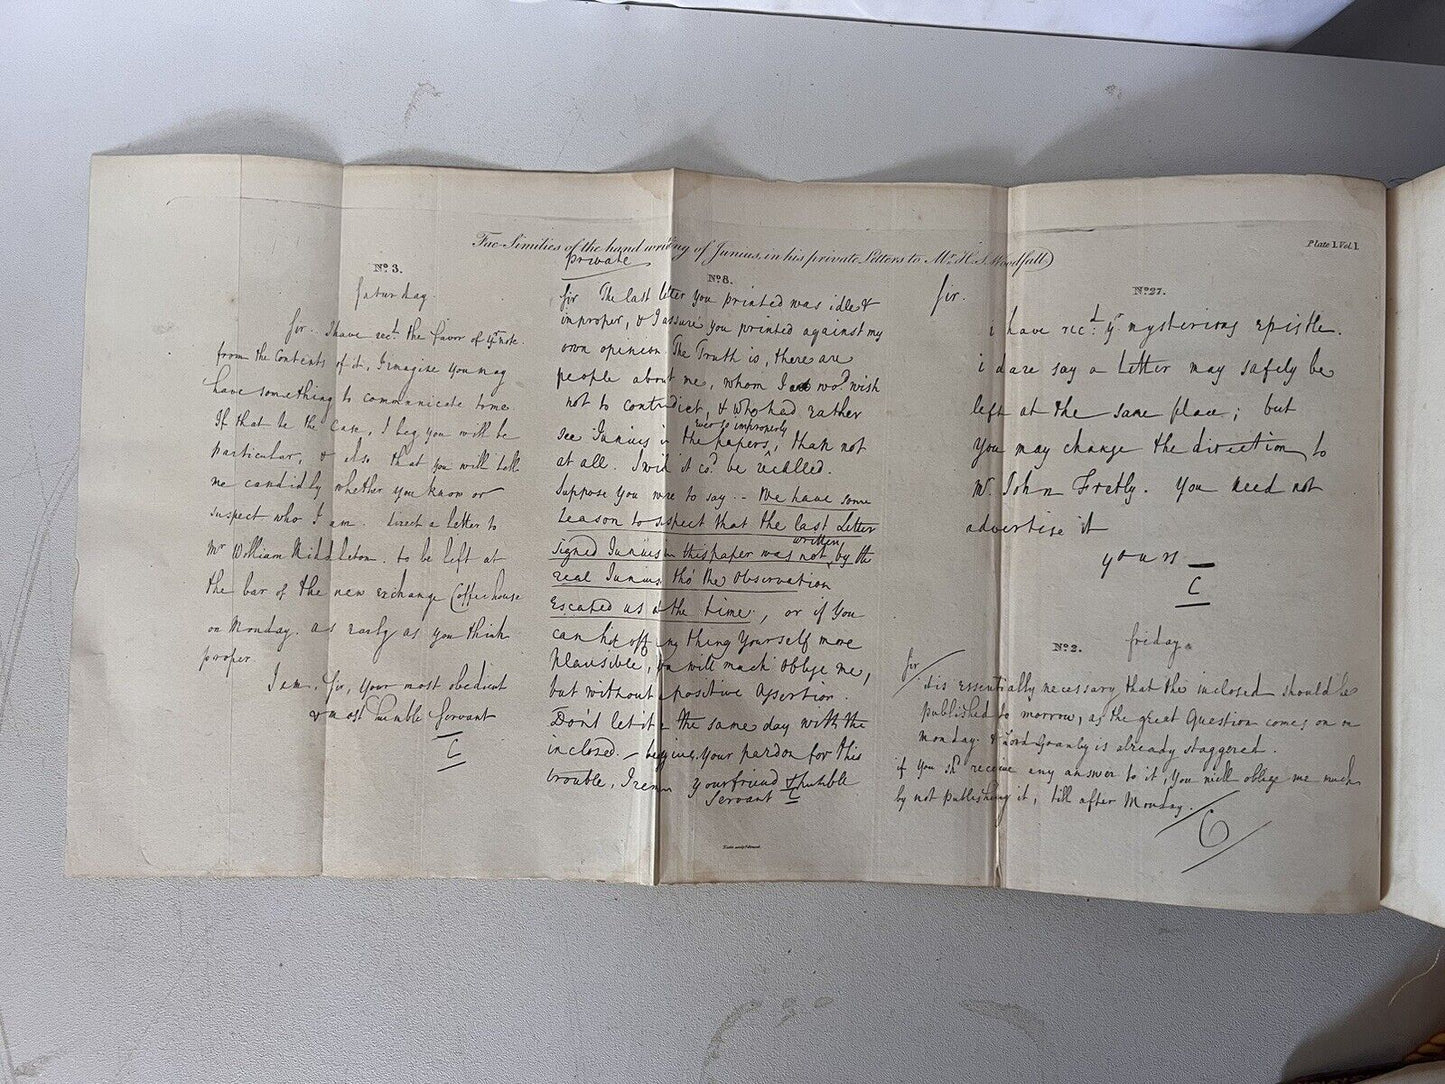 Fac-Similies of the hand writing of Junius, in his private Letters to Mr. H. S. Woodfall
Plate 1. Vol. 1.
No. 3.
Saturday
Sir. I have recd. the favor of yr. note.
from the Contents of it, I imagine you may
have something to communicate to me.
If that be the Case, I beg you will be
particular, & also that you will tell
me candidly whether you know or
suspect who I am. direct a letter to
Mr William Middleton. to be left at
the bar of the new exchange Coffee house
on Monday. as early as you think
proper.
I am, Sir, Your most obedient
& most humble Servant
C
private
No. 8.
Sir The last letter you printed was idle &
improper, & I assure you printed against my
own opinion. The Truth is, there are
people about me, whom I wod. wish
not to contradict, & who had rather
see Junius in the papers ever so improperly, than not
at all. I wish it cod. be recalled.
Suppose you were to say -- We have some
reason to suspect that the last Letter
signed Junius in this paper was not written by the
real Junius, tho' the Observation
Escaped us at the time; or if you
can hit off any thing Yourself more
plausible, you will much oblige me,
but without a positive Assertion.
Don't let it be the same day with the
inclosed. — begging your pardon for this
trouble, I remain your friend & humble
Servant C
No. 27.
Sir.
i have recd. yr mysterious epistle.
i dare say a letter may safely be
left at the same place; but
you may change the direction to
Mr. John Fretly. You need not
advertise it
yours
C
No. 2.
friday
Sir
it is essentially necessary, that the inclosed should be
published to morrow, as the great Question comes on on
monday. & Lord Granby is already staggered.
if you shd. receive any answer to it, you will oblige me much
by not publishing it, till after Monday.
C